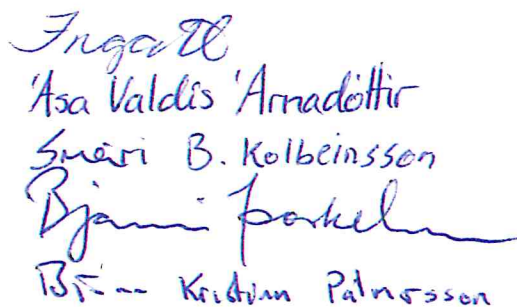 Inga
Ása Valdís Árnadóttir
Smári B. Kolbeinsson
Bjarni Þorkelsson
Björn Kristinn Pálmarsson